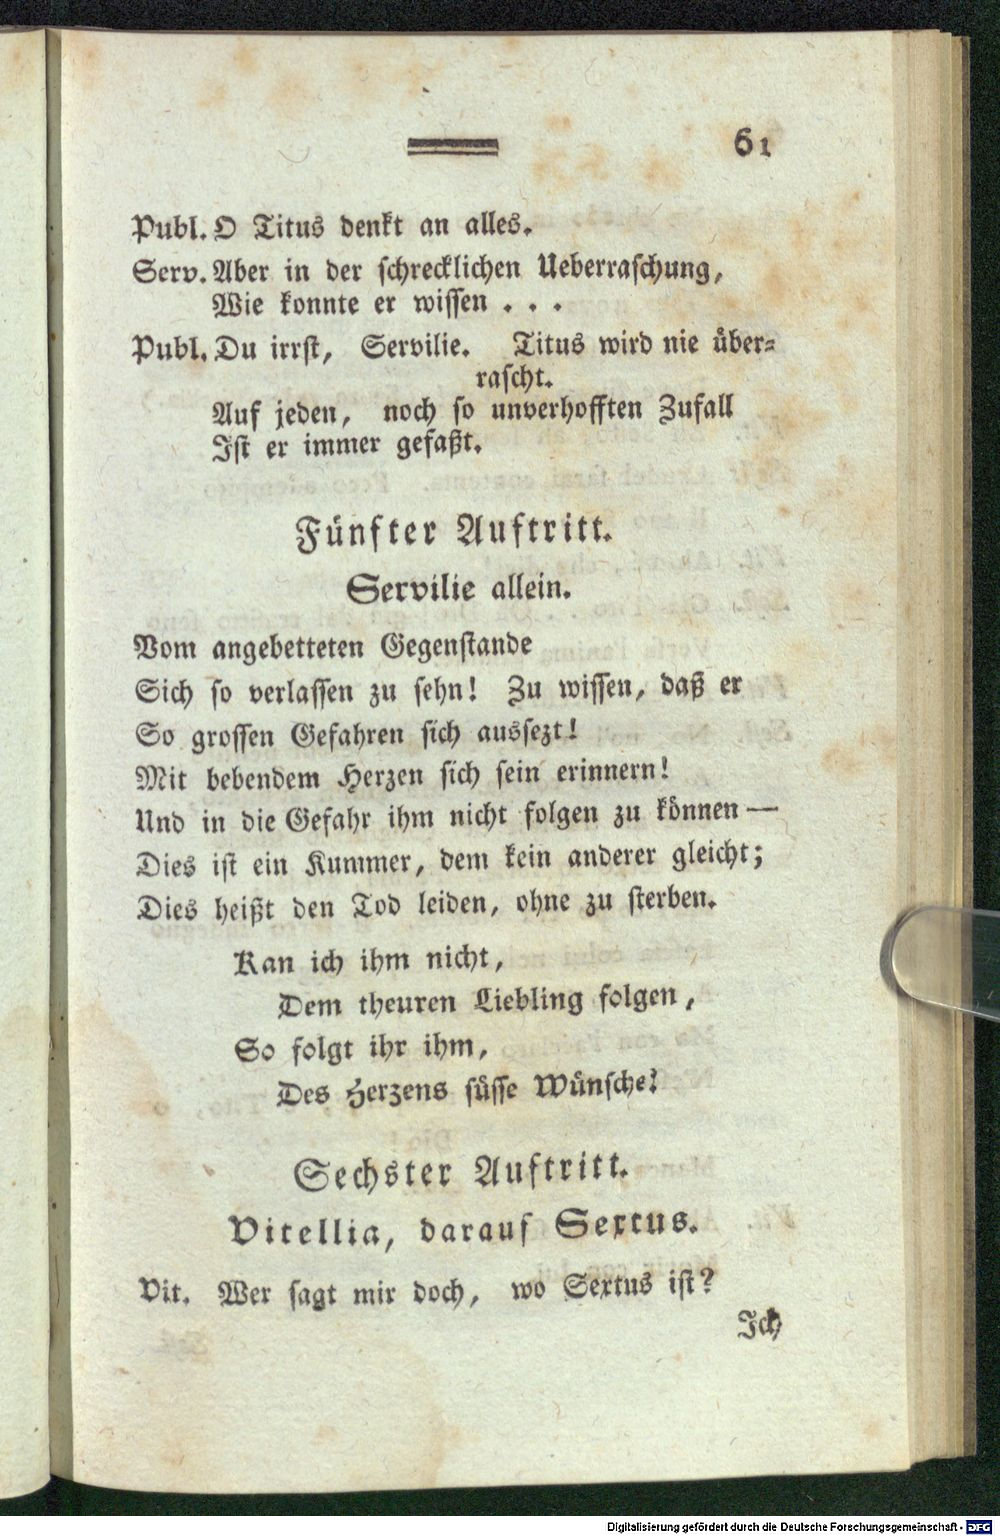 61
Publ. O Titus denkt an alles.
Serv. Aber in der schrecklichen Ueberraschung,
Wie konnte er wissen . . .
Publ. Du irrst, Servilie. Titus wird nie über-
rascht.
Auf jeden, noch so unverhofften Zufall
Ist er immer gefaßt.
Fünfter Auftritt.
Servilie allein.
Vom angebetteten Gegenstande
Sich so verlassen zu sehn! Zu wissen, daß er
So grossen Gefahren sich aussezt!
Mit bebendem Herzen sich sein erinnern!
Und in die Gefahr ihm nicht folgen zu können —
Dies ist ein Kummer, dem kein anderer gleicht;
Dies heißt den Tod leiden, ohne zu sterben.
Kan ich ihm nicht,
Dem theuren Liebling folgen,
So folgt ihr ihm,
Des Herzens süsse Wünsche!
Sechster Auftritt.
Vitellia, darauf Sextus.
Vit. Wer sagt mir doch, wo Sextus ist?
Ich
Digitalisierung gefördert durch die Deutsche Forschungsgemeinschaft - DFG